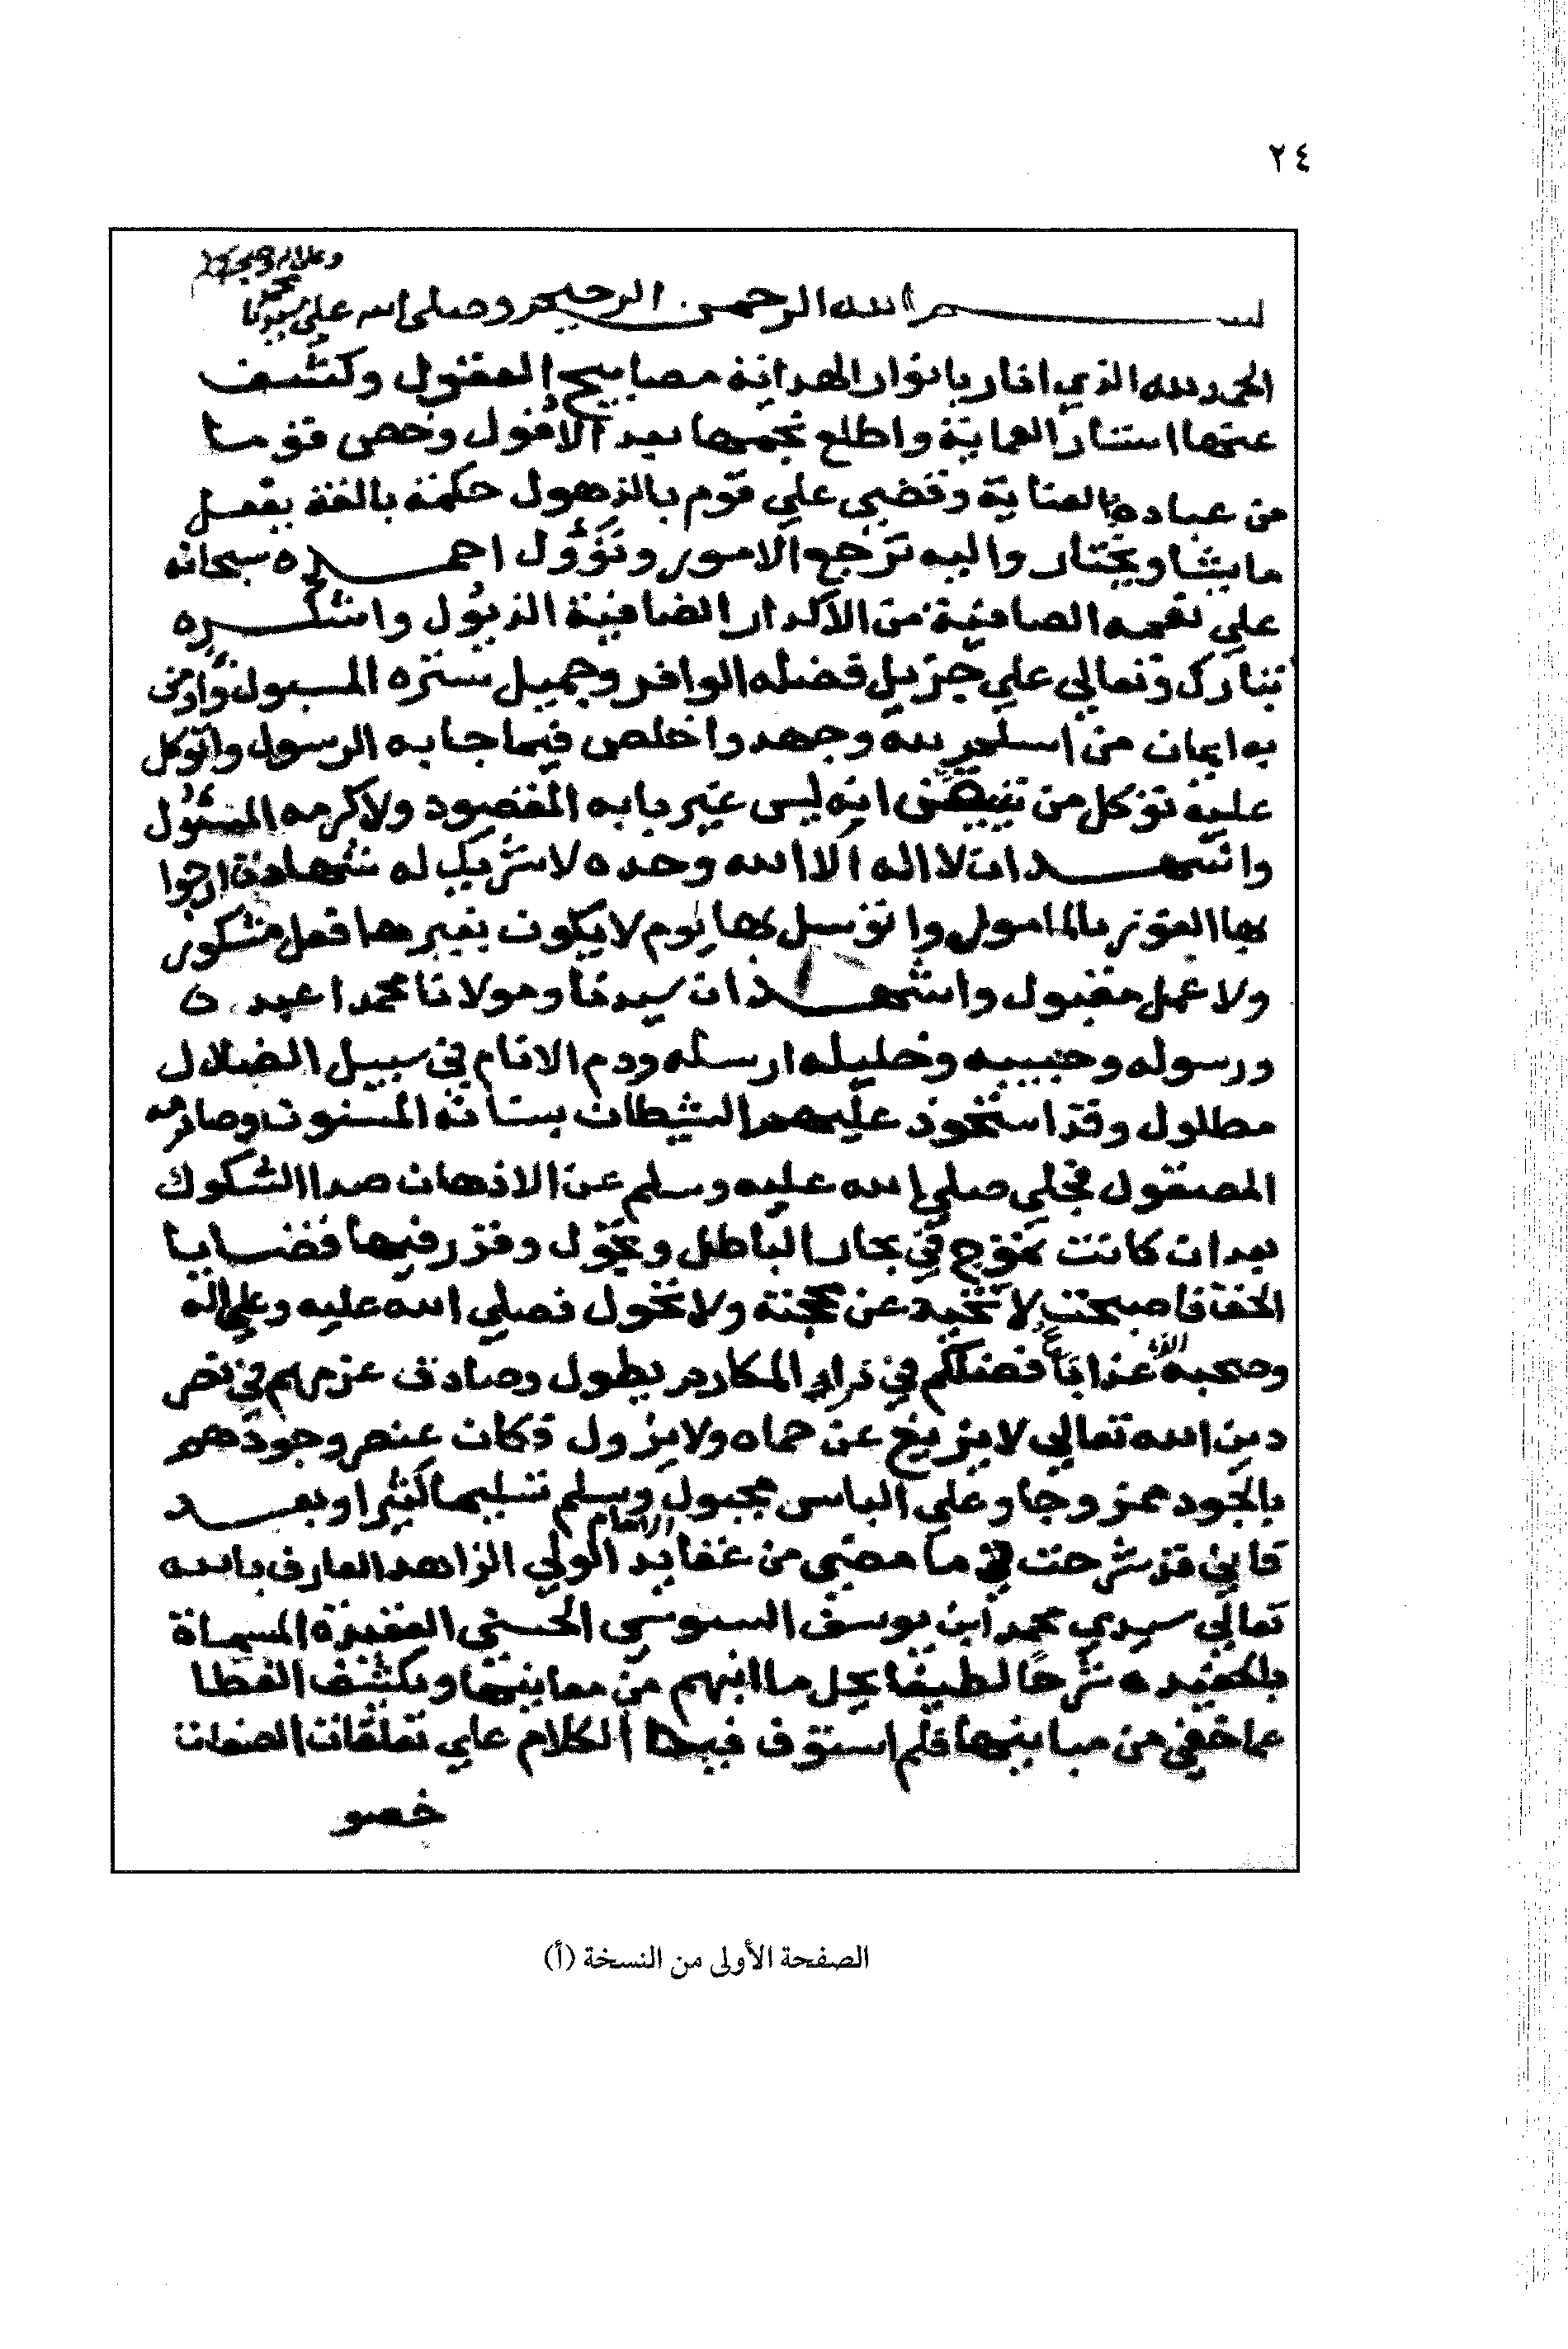 ٢٤
بسم الله الرحمن الرحيم وصلى الله علي سيدنا محمد
وعلى اله وصحبه
الحمد لله الذي انار بانوار الهداية مصابيح العقول وكشف
عنها استار العماية واطلع نجمها بعد الافول وخص قوما
من عباده بالعناية وقضي علي قوم بالذهول حكمة بالغة يفعل
ما يشا ويختار واليه ترجع الامور وتؤول احمده سبحانه
علي نعمه الصافية من الاكدار الضافية الذيول واشكره
تبارك وتعالي علي جزيل فضله الوافر وجميل ستره المسبول واومن
به ايمان من اسلم لله وجهه واخلص فيما جا به الرسول واتوكل
عليه توكل من تيقن انه ليس غير بابه المقصود ولا كرمه المسئول
واشهد ان لا اله الا الله وحده لا شريك له شهادة ارجوا
بها الفوز بالمامول واتوسل بها يوم لا يكون بغيرها فعل مشكور
ولا عمل مقبول واشهد ان سيدنا ومولانا محمدا عبده
ورسوله وحبيبه وخليله ارسله ودم الانام في سبيل الضلال
مطلول وقد استحوذ عليهم الشيطان بسنانه المسنون وصارمه
المصقول فجلي صلي الله عليه وسلم عن الاذهان صدا الشكوك
بعد ان كانت تموج في بحار الباطل وتجول وقرر فيها قضايا
الحق فاصبحت لا تحيد عن محجته ولا تحول فصلي الله عليه وعلي اله
وصحبه الذين عدا بنا فضلكم في ذرا المكارم يطول وصادق عزمهم في نصر
دين الله تعالي لا يزيغ عن حماه ولا يزول وكان عنصر وجودهم
بالجود ممزوجا وعلي الباس مجبول وسلم تسليما كثيرا وبعد
فاني قد شرحت في ما مضي من عقايد الامام الولي الزاهد العارف بالله
تعالي سيدي محمد ابن يوسف السنوسي الحسني العقيدة المسماة
بالحفيده شرحا لطيفا يحل ما ابهم من معانيها ويكشف الغطا
عما خفي من مبانيها فلم استوف فيها الكلام علي تعلقات الصفات
خصو
الصفحة الأولى من النسخة (أ)